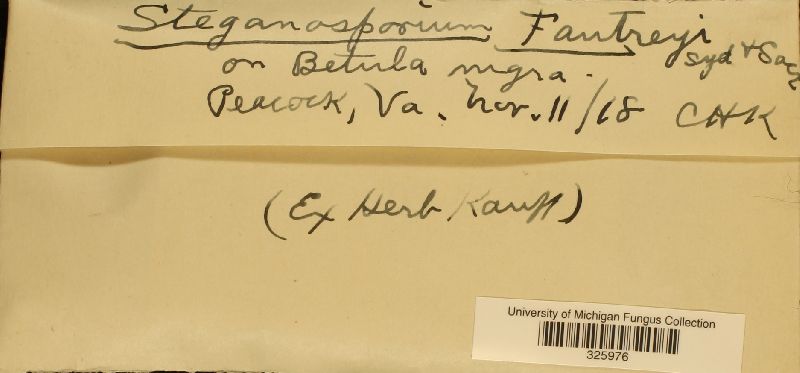 Steganosporium Fautreyi
Syd & Sacc
on Betula nigra.
Peacock, Va. Nov. 11/18 CHK
(Ex Herb Kauff)
University of Michigan Fungus Collection
325976